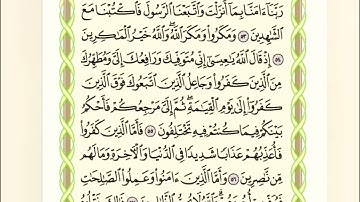 رَبَّنَآ ءَامَنَّا بِمَآ أَنزَلْتَ وَٱتَّبَعْنَا ٱلرَّسُولَ فَٱكْتُبْنَا مَعَ
ٱلشَّٰهِدِينَ ٥٣ وَمَكَرُوا۟ وَمَكَرَ ٱللَّهُ وَٱللَّهُ خَيْرُ ٱلْمَٰكِرِينَ
٥٤ إِذْ قَالَ ٱللَّهُ يَٰعِيسَىٰٓ إِنِّى مُتَوَفِّيكَ وَرَافِعُكَ إِلَىَّ وَمُطَهِّرُكَ
مِنَ ٱلَّذِينَ كَفَرُوا۟ وَجَاعِلُ ٱلَّذِينَ ٱتَّبَعُوكَ فَوْقَ ٱلَّذِينَ
كَفَرُوٓا۟ إِلَىٰ يَوْمِ ٱلْقِيَٰمَةِ ثُمَّ إِلَىَّ مَرْجِعُكُمْ فَأَحْكُمُ
بَيْنَكُمْ فِيمَا كُنتُمْ فِيهِ تَخْتَلِفُونَ ٥٥ فَأَمَّا ٱلَّذِينَ كَفَرُوا۟
فَأُعَذِّبُهُمْ عَذَابًا شَدِيدًا فِى ٱلدُّنْيَا وَٱلْءَاخِرَةِ وَمَا لَهُم
مِّن نَّٰصِرِينَ ٥٦ وَأَمَّا ٱلَّذِينَ ءَامَنُوا۟ وَعَمِلُوا۟ ٱلصَّٰلِحَٰتِ